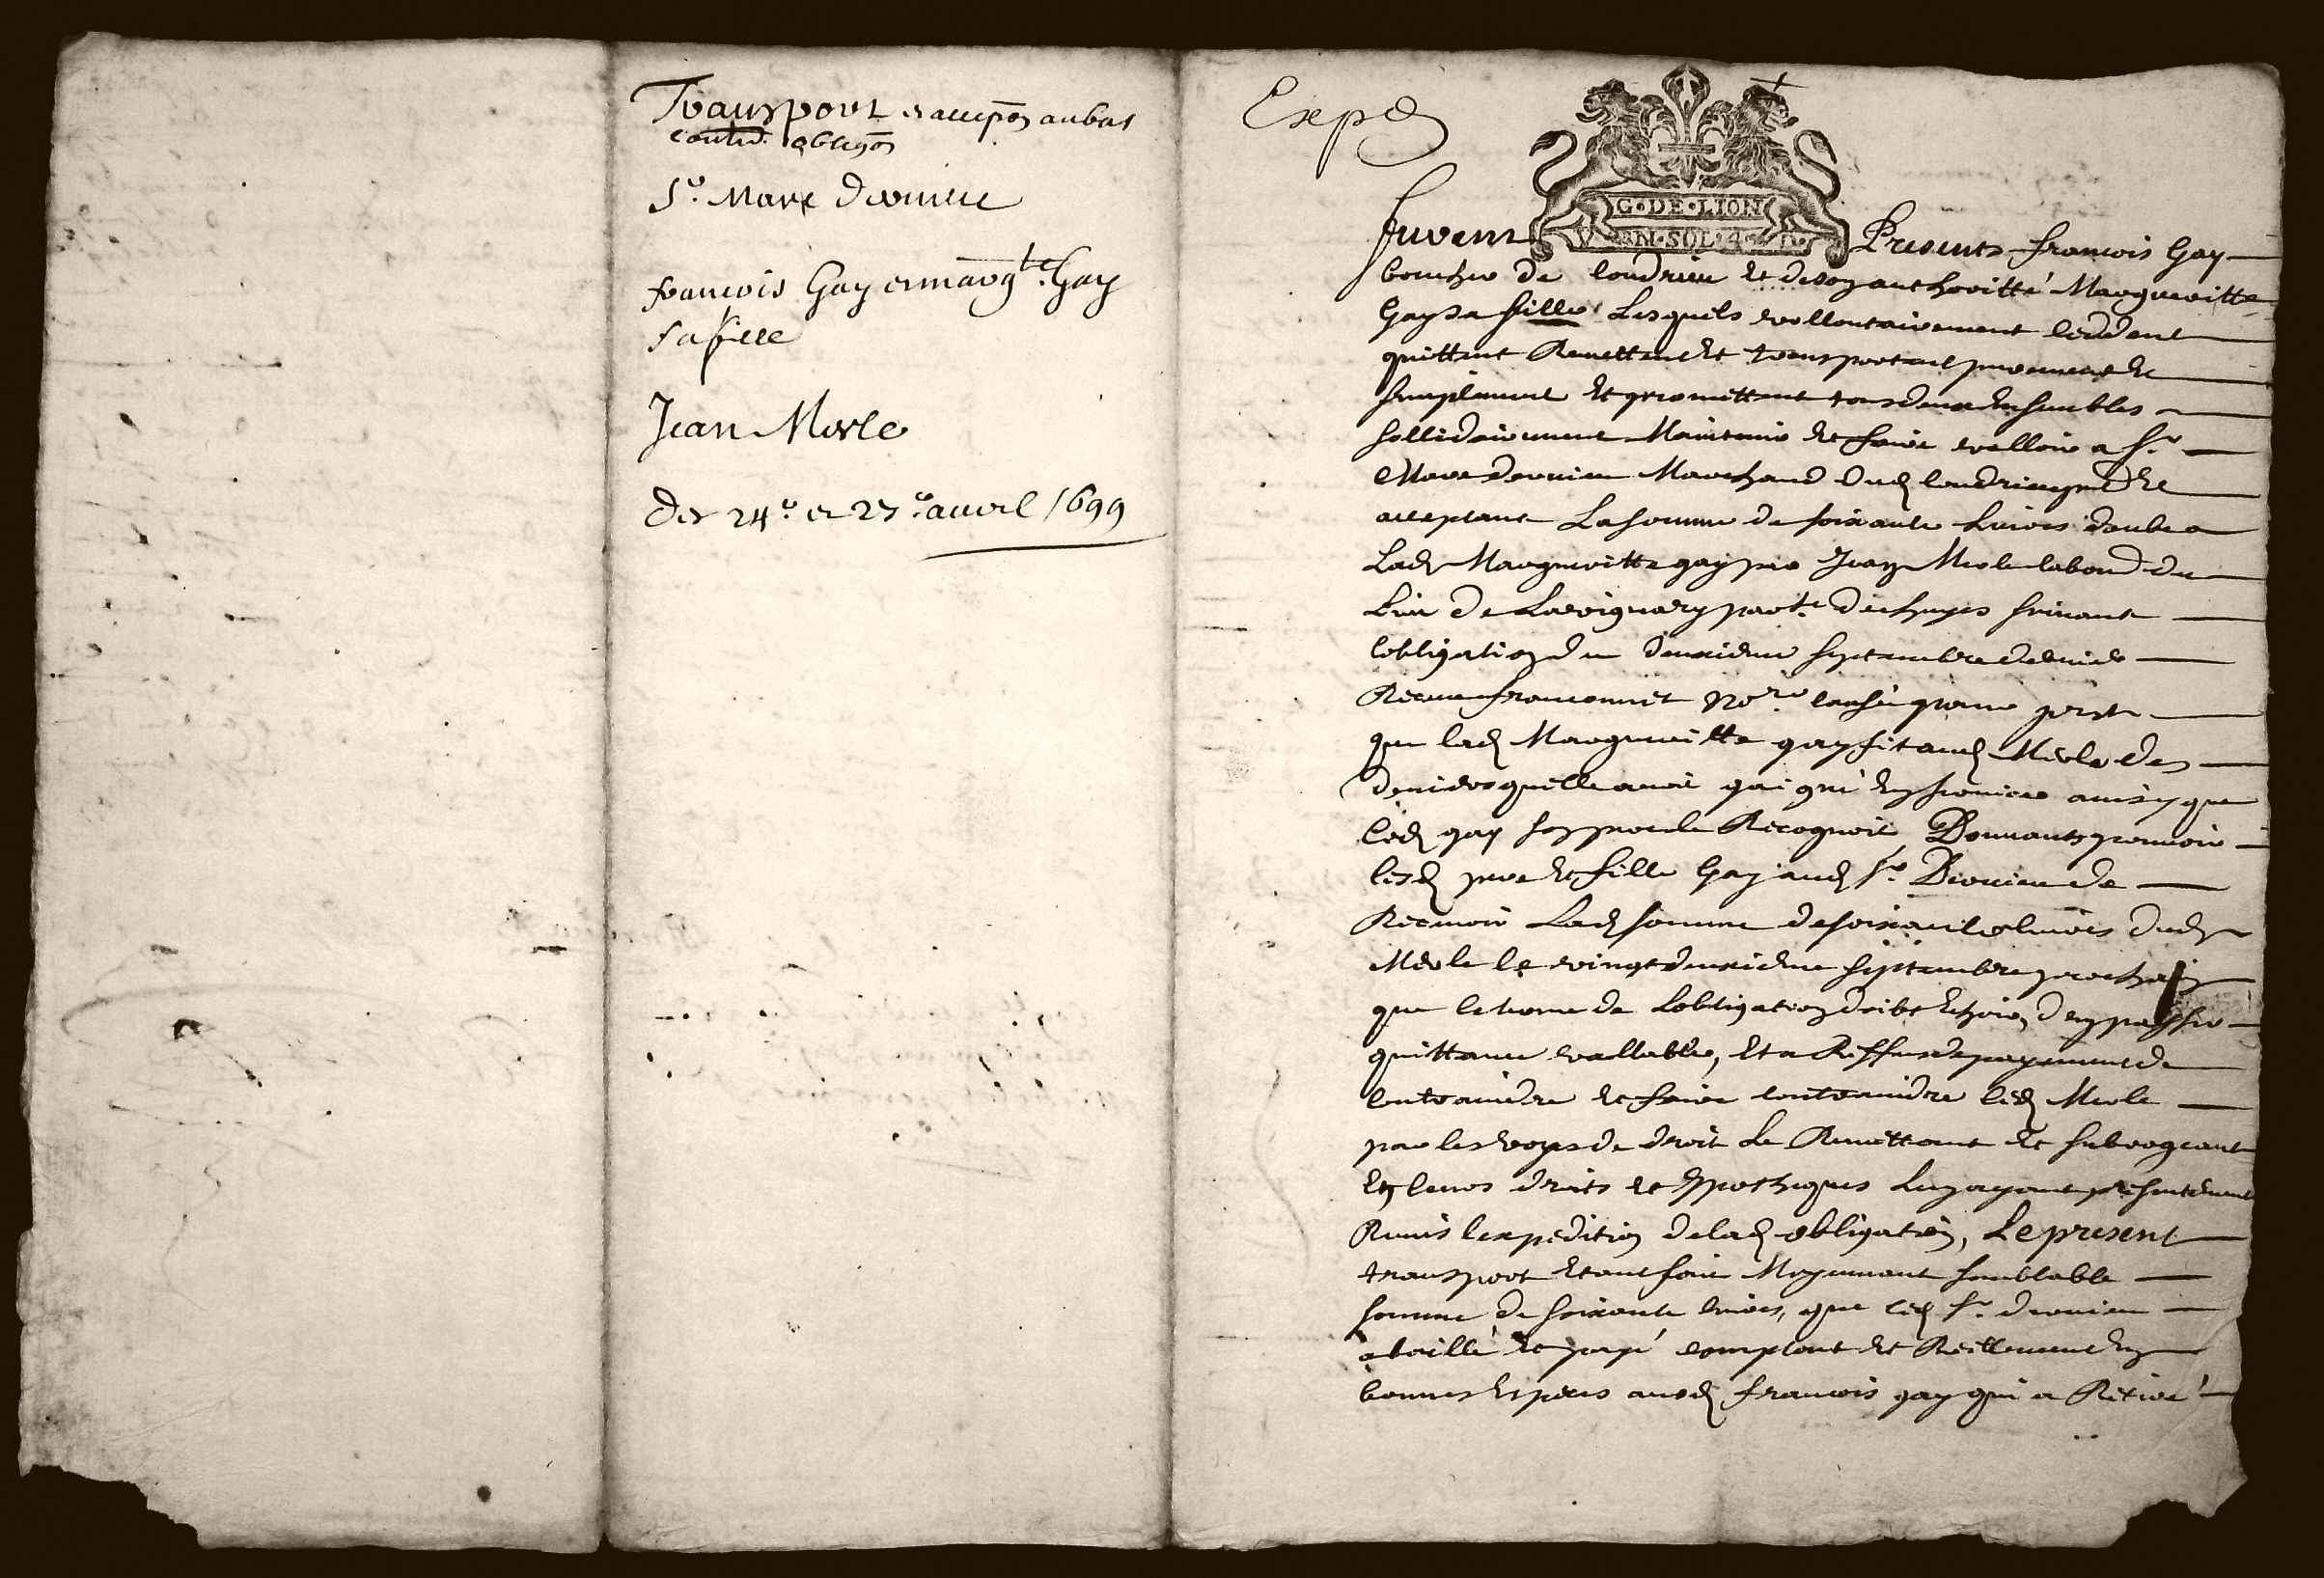 Transport et accep̄on au bas
contre obligōn
Sr. Marc Dervieu
françois Gay et marg.te Gay
sa fille
Jean Merle
Des 24e. et 27e. avril 1699
Exped
G·DE·LION
SOL·4·D
furent Presents françois Gay
boucher de Condrieu et de son authoritté Margueritte
Gay sa fille Lesquels vollontairement ceddent
quittent Remettent et transportent purement et
simplement et promettent tous deux ensembles
sollidairement Maintenir et faire valloir a Sr.
Marc dervieu Marchand dud Condrieu pnt et
acceptant La somme de soixante Livres deube a
Lad Margueritte gay par Jean Merle labour du
Lieu de parr. suivant
lobligation du deuxieme septembre dernier
Receue franconnet No.re
que lad Margueritte gay fit aud Merle des
deniers quelle avoit gaigné en service ainsy que
led gay son pere le Recognoit Donnants pouvoir
lesd pere et fille Gay aud Sr. Dervieu de
Recevoir Lad somme de soixante livres dud
Merle le vingt deuxieme septembre prochain
que le terme de Lobligation doibt echoir, den passer
quittance vallable, Et a Reffus de payement de
contraindre et faire contraindre led Merle
par les voyes de droit Le Remettant et subrogeant
En leurs droits et hypotheques Luy ayant presentement
Remis lexpedition de lad obligation, Le present
transport Etant fait Moyennant semblable
somme de soixante livres, que led Sr. dervieu
a baillé et payé comptant et Reellement en
bonnes Especes aud françois gay qui a Retiré